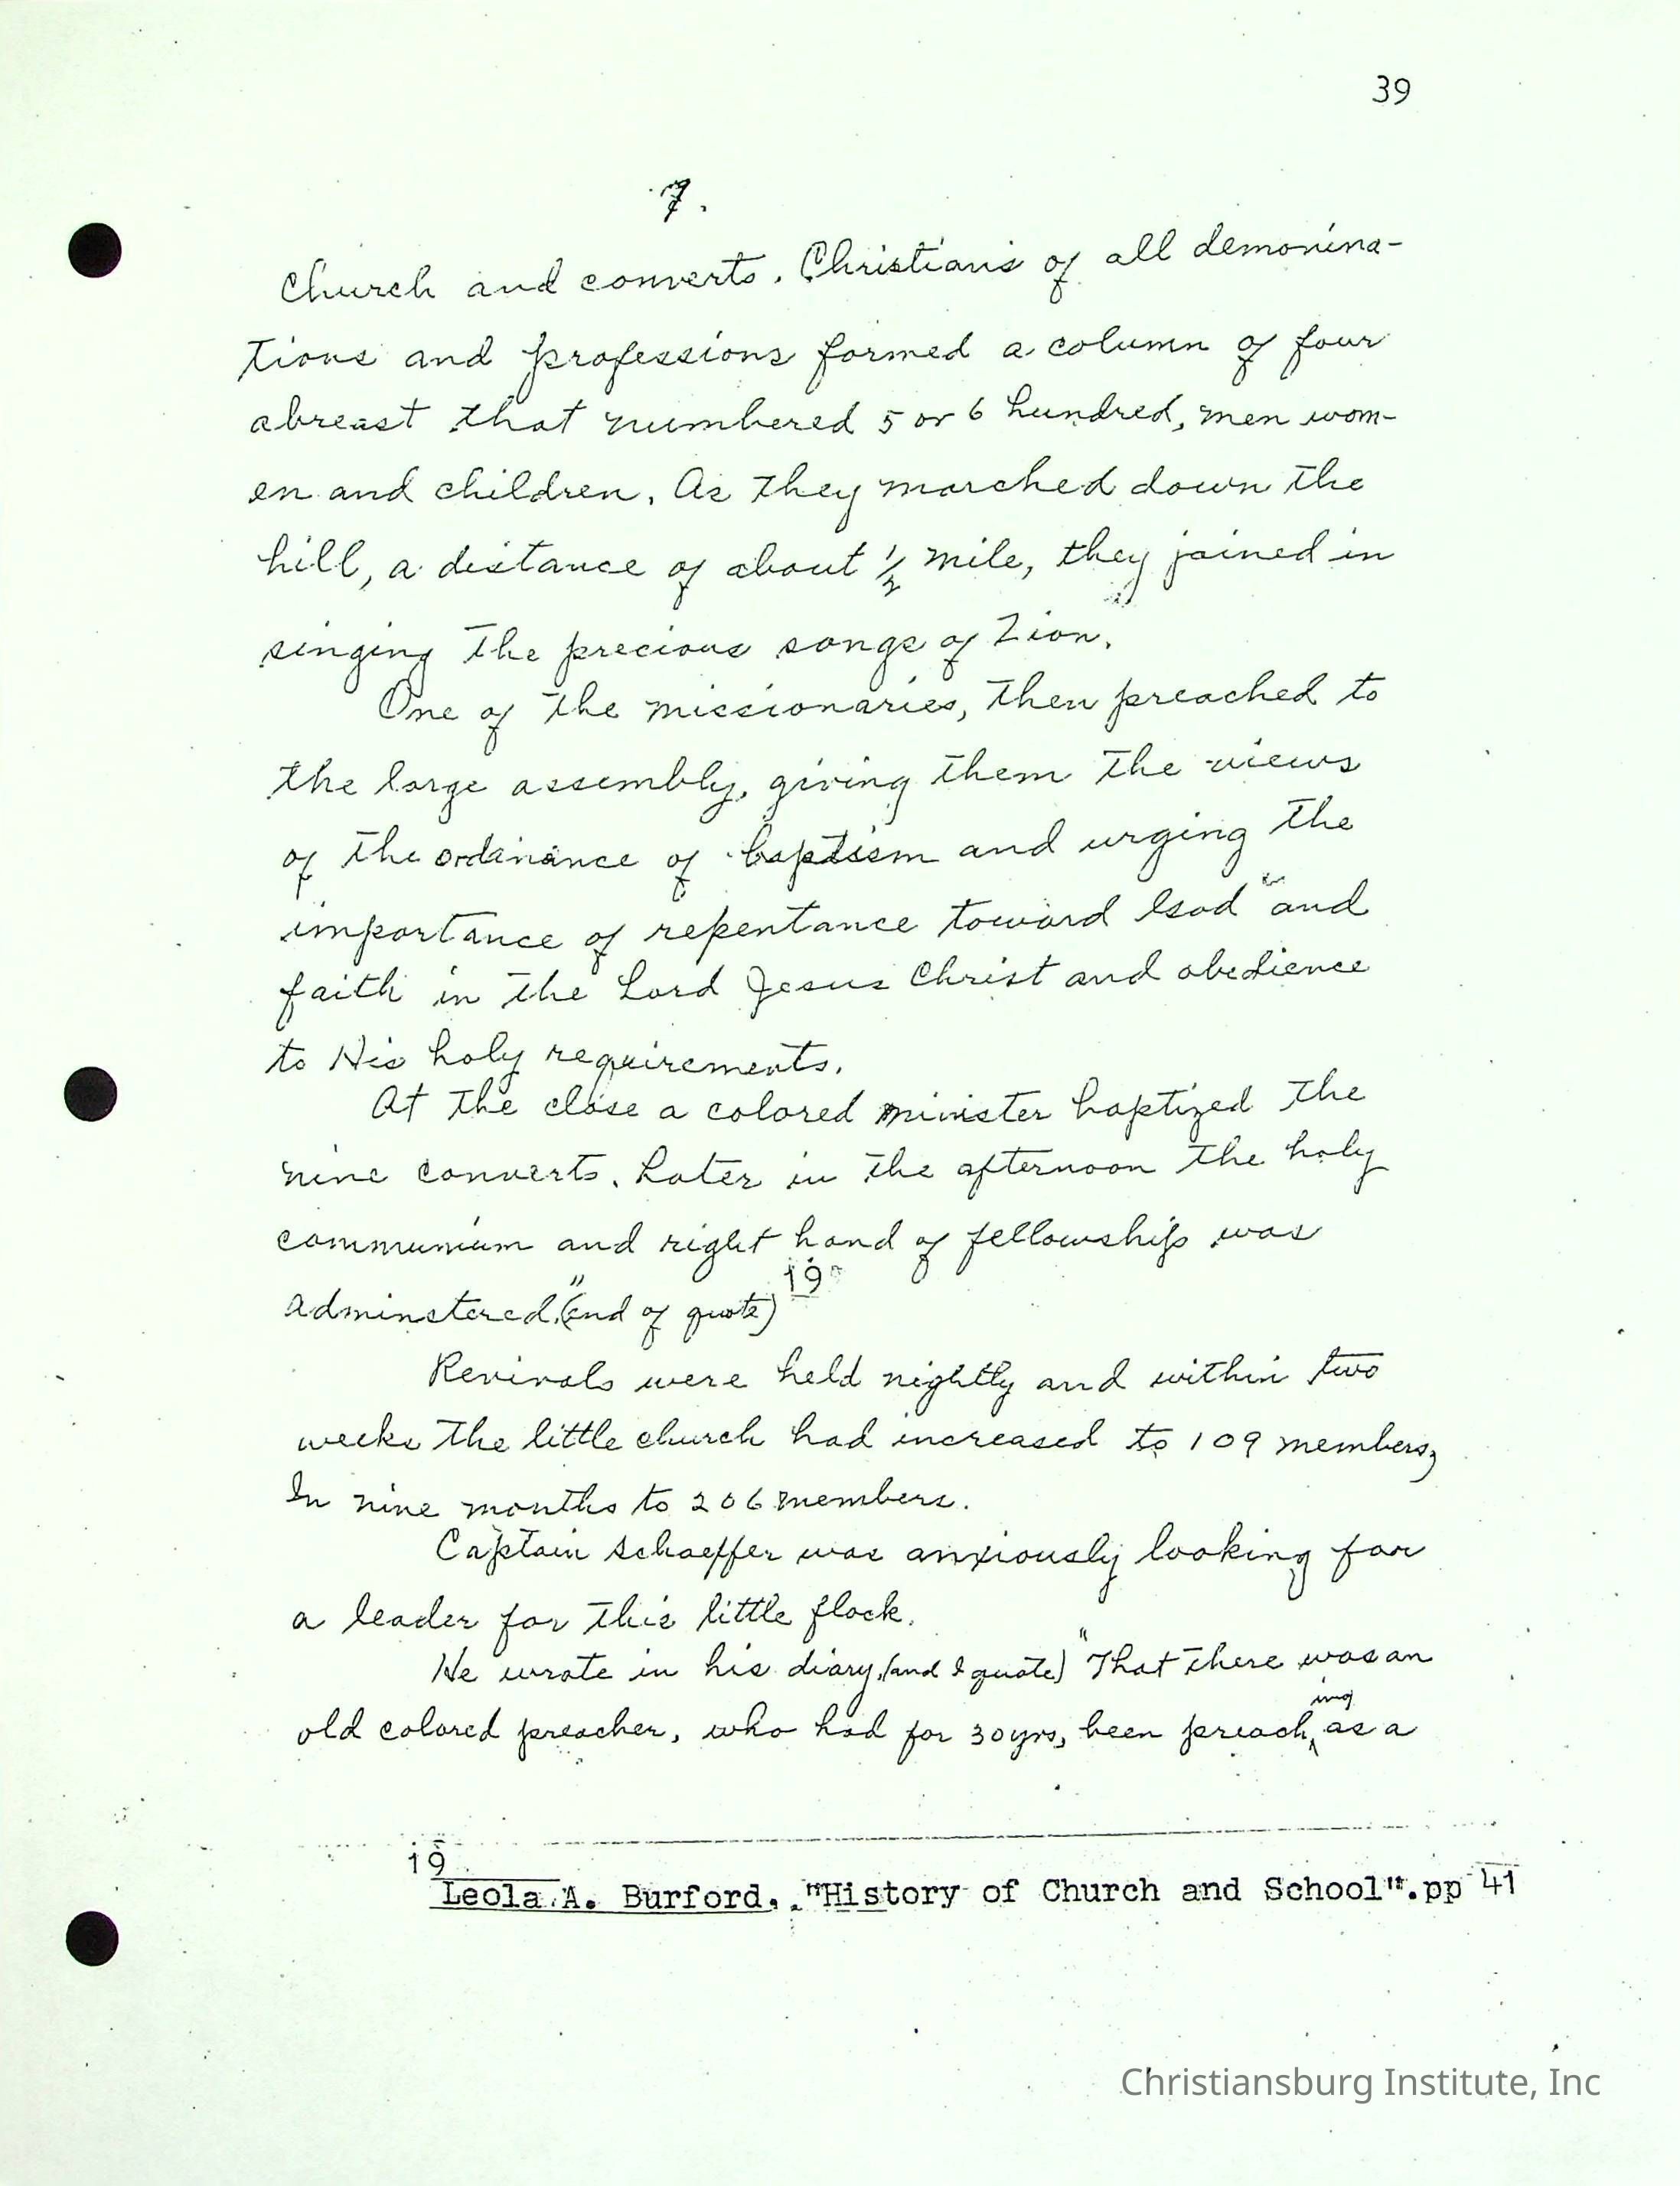 39
7.
Church and converts. Christians of all demonina-
tions and professions formed a column of four
abreast that numbered 5 or 6 hundred, men wom-
en and children. As they marched down the
hill, a distance of about 1/2 mile, they joined in
singing the precious songs of Zion.
One of the missionaries, then preached to
the large assembly, giving them the views
of the ordinance of baptism and urging the
importance of repentance toward God and
faith in the Lord Jesus Christ and obedience
to His holy requirements.
At the close a colored minister baptized the
nine converts. Later in the afternoon the holy
communium and right hand of fellowship was
adminstered." (end of quote) 19
Revivals were held nightly and within two
weeks the little church had increased to 109 members,
In nine months to 206 members.
Captain Schaeffer was anxiously looking for
a leader for this little flock.
He wrote in his diary, (and I quote) "That there was an
old colored preacher, who had for 30 yrs, been preaching as a
19
Leola A. Burford, "History of Church and School".pp 41
Christiansburg Institute, Inc